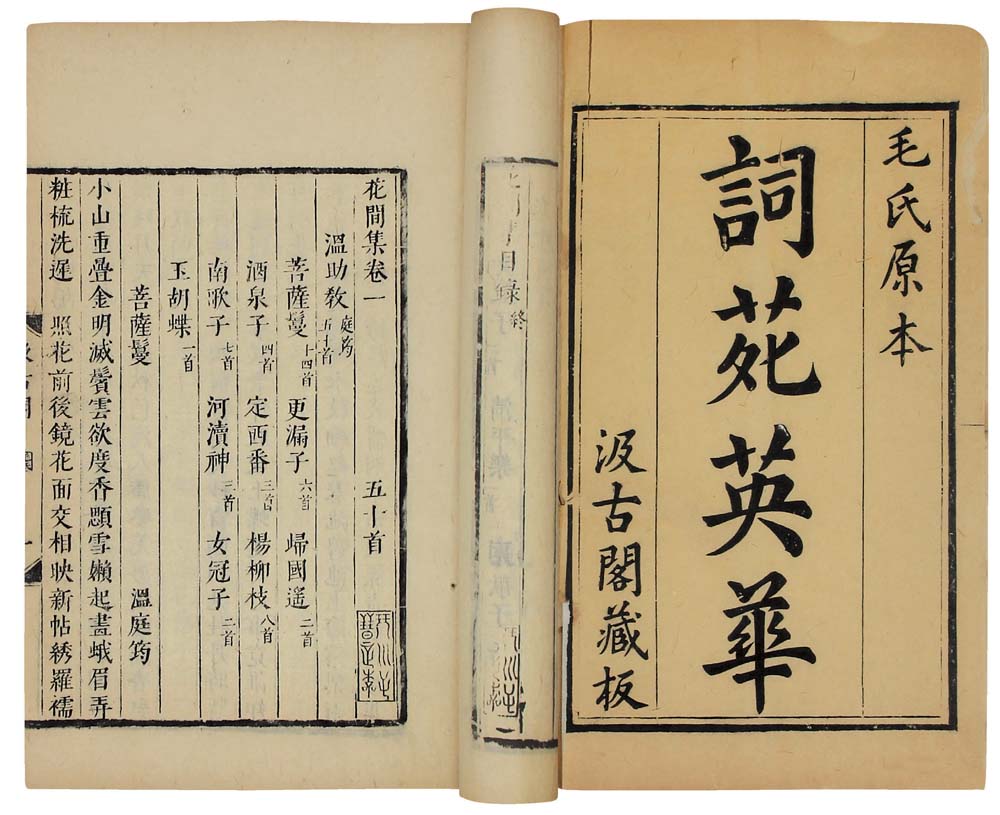 毛氏原本
詞苑英華
汲古閣藏板
目錄終
花間集卷一
五十首
溫助教庭筠五十首
菩薩鬘十四首 更漏子六首 歸國遙二首
酒泉子四首 定西番三首 楊柳枝八首
南歌子七首 河瀆神三首 女冠子二首
玉胡蝶一首
菩薩鬘 溫庭筠
小山重疊金明滅鬢雲欲度香顋雪嬾起畫蛾眉弄
粧梳洗遲 照花前後鏡花面交相映新帖綉羅襦